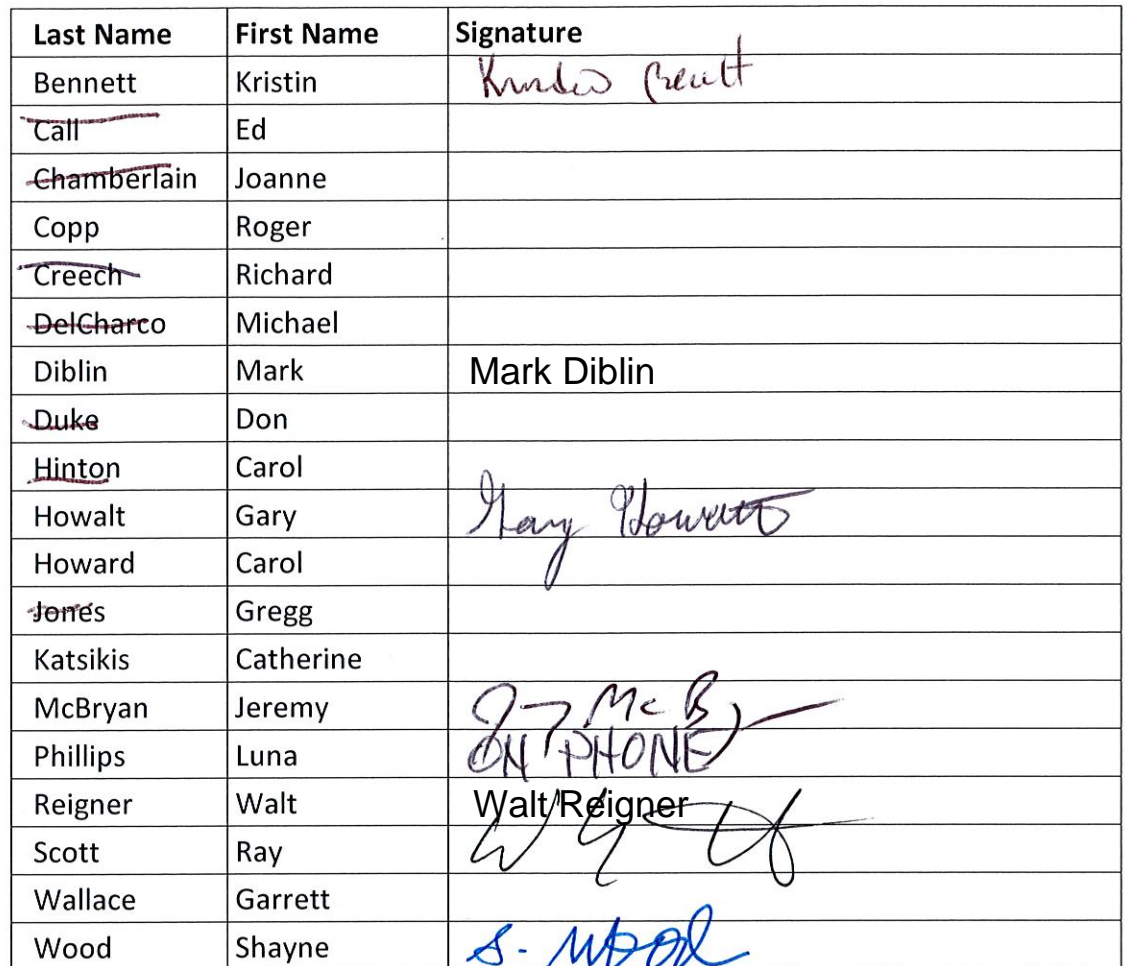 Last Name First Name Signature
Bennett Kristin
Call Ed
Chamberlain Joanne
Copp Roger
Creech Richard
DelCharco Michael
Diblin Mark Mark Diblin
Duke Don
Hinton Carol
Howalt Gary Gary Howalt
Howard Carol
Jones Gregg
Katsikis Catherine
McBryan Jeremy McB
Phillips Luna ON PHONE
Reigner Walt Walt Reigner
Scott Ray
Wallace Garrett
Wood Shayne S. Wood